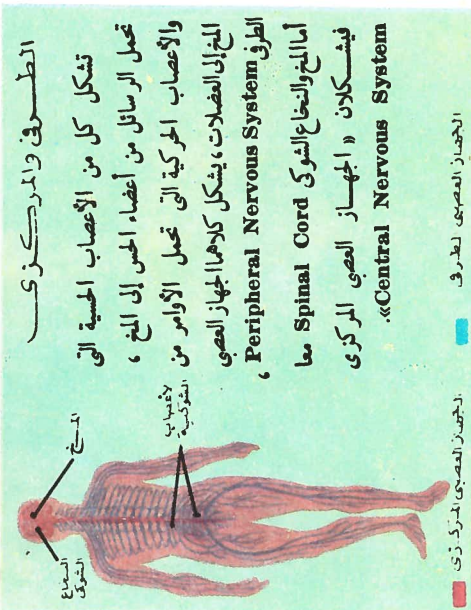 الطرفى والمركزى
تشكل كل من الأعصاب الحسية التى
تحمل الرسائل من أعضاء الحس إلى المخ ،
والأعصاب الحركية التى تحمل الأوامر من
المخ إلى العضلات ، يشكل كلاهما الجهاز العصبى
الطرفى Peripheral Nervous System ،
أما المخ والنخاع الشوكى Spinal Cord معا
فيشكلان « الجهاز العصبى المركزى
Central Nervous System».
المخ
النخاع
الشوكى
لأعصاب
الشوكية
الجهاز العصبى المركزى
الجهاز العصبى لطرفى